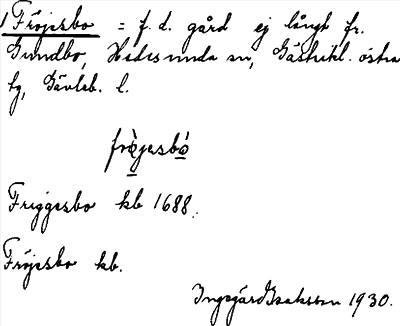 Fröjesbo = f. d. gård ej långt fr.
Gundbo, Hedesunda sn, Gästrikl. östra
tg, Gävleb. l.
fröjesbo
Friggesbo kb 1688.
Fröjesbo kb.
Ingegärd Isaksson 1930.